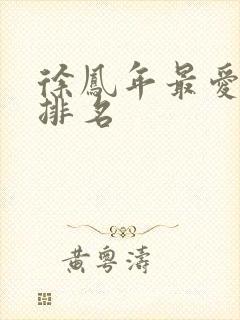 徐鳳年最愛
排名
黃粵濤